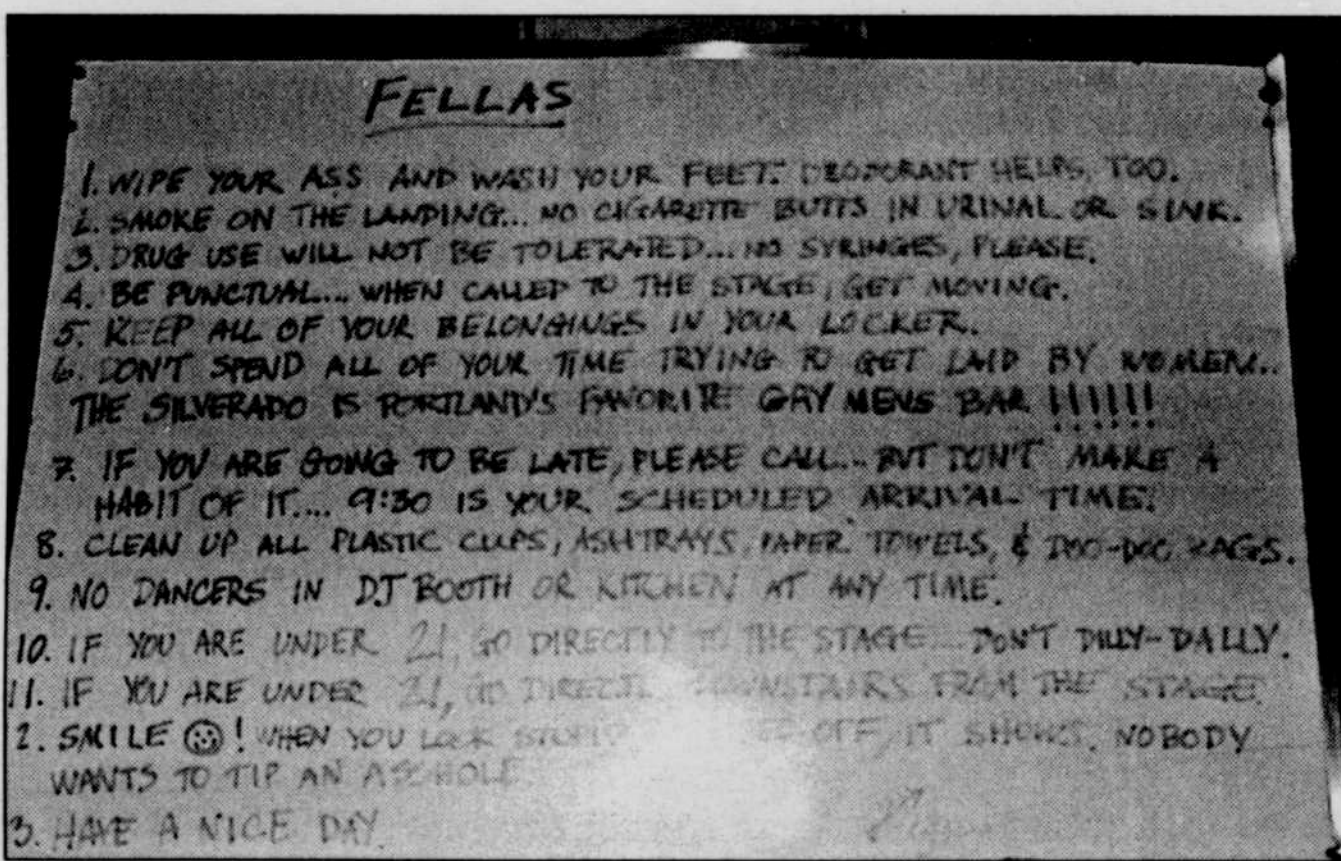 FELLAS
1. WIPE YOUR ASS AND WASH YOUR FEET. DEODORANT HELPS, TOO.
2. SMOKE ON THE LANDING... NO CIGARETTE BUTTS IN URINAL OR SINK.
3. DRUG USE WILL NOT BE TOLERATED... NO SYRINGES, PLEASE.
4. BE PUNCTUAL... WHEN CALLED TO THE STAGE, GET MOVING.
5. KEEP ALL OF YOUR BELONGINGS IN YOUR LOCKER.
6. DON'T SPEND ALL OF YOUR TIME TRYING TO GET LAID BY WOMEN...
THE SILVERADO IS PORTLAND'S FAVORITE GAY MENS BAR !!!!!!
7. IF YOU ARE GOING TO BE LATE, PLEASE CALL... BUT DON'T MAKE A
HABIT OF IT.... 9:30 IS YOUR SCHEDULED ARRIVAL TIME.
8. CLEAN UP ALL PLASTIC CUPS, ASHTRAYS, PAPER TOWELS, & DOO-DOO RAGS.
9. NO DANCERS IN DJ BOOTH OR KITCHEN AT ANY TIME.
10. IF YOU ARE UNDER 21, GO DIRECTLY TO THE STAGE... DON'T DILLY-DALLY.
11. IF YOU ARE UNDER 21, GO DOWNSTAIRS FROM THE STAGE.
2. SMILE ☺! WHEN YOU LOOK OFF, IT SHOWS. NOBODY
WANTS TO TIP AN ASSHOLE
3. HAVE A NICE DAY.